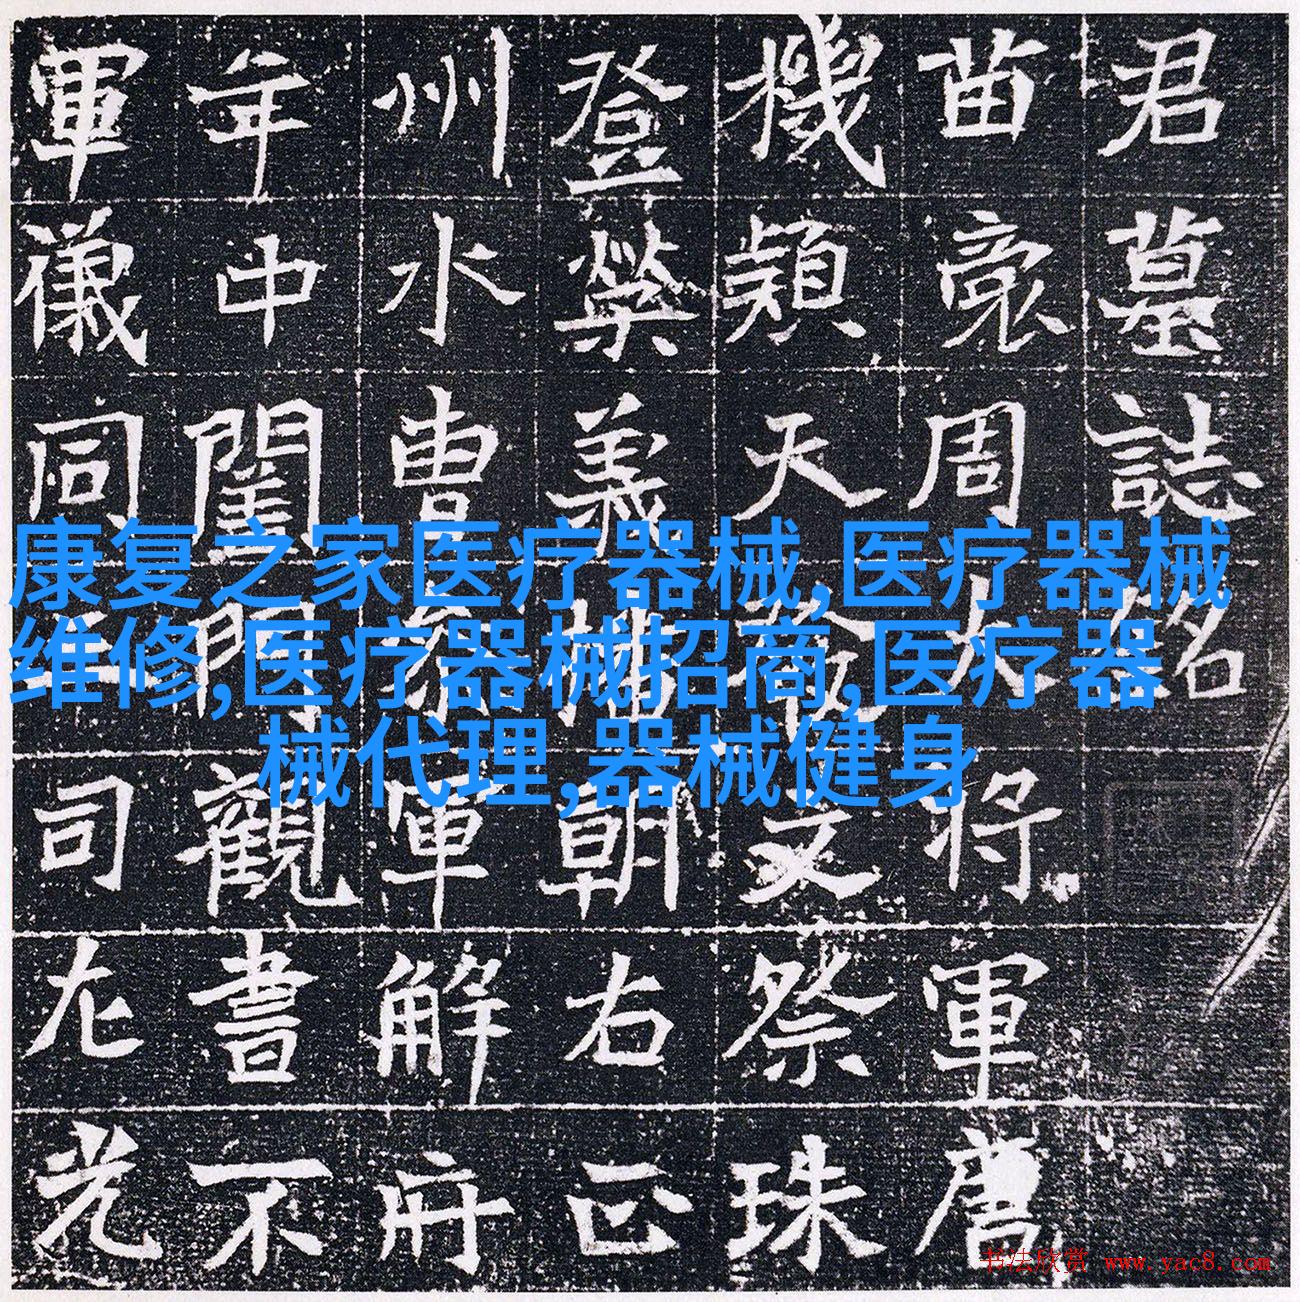 君墓誌銘
苗裔周大将軍
機穎天發文祭珠
登榮義播朝右正
州水曹参軍解
年中閨門觀書不
軍儀同三司左光
康复之家医疗器械,医疗器械
维修,医疗器械招商,医疗器
械代理,器械健身
书法欣赏 www.yac8.com